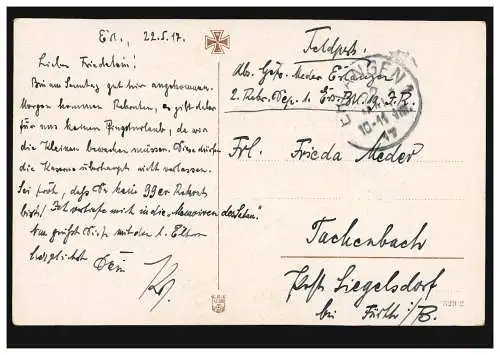 Erl., 22.5.17.
Liebes Friedelein!
Bin am Sonntag gut hier angekommen.
Morgen kommen Rekruten, es gibt daher
für uns keinen Pfingsturlaub, da wir
die Kleinen bewachen müssen. Diese dürfen
die Kaserne überhaupt nicht verlassen.
Sei froh, daß Du kein 99er Rekrut
bist! Ich vertiefe mich in die „Memoiren des Satan."
Nun grüßt Dich mit den l. Eltern
herzlichst Dein
Feldpost.
Abs. Gefr. Meder Erlangen
2. Rekr. Dep. I. Ers. Btl. 19. I.R.
ERLANGEN
10-11 Vm
17
Frl. Frieda Meder
Tuchenbach
Post Siegelsdorf
bei Fürth i/B.